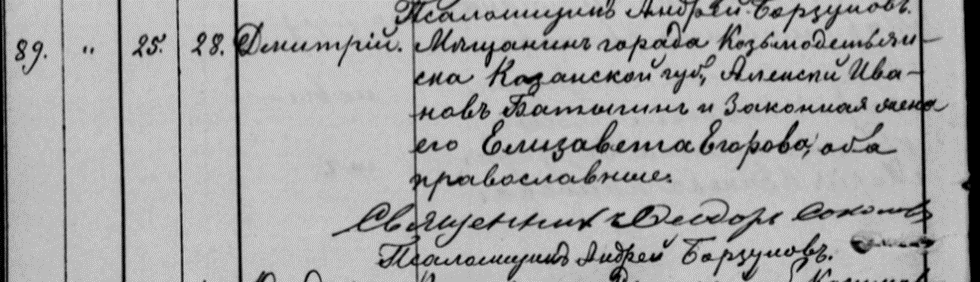 Псаломщикъ Андрей Борзуновъ.
89. " 25. 28. Дмитрій. Мѣщанинъ города Козьмодемьян-
ска Казанской губ, Алексѣй Ива-
новъ Батыгинъ и законная жена
его Елизавета Егорова, оба
православные.
Священникъ Ѳеодоръ Соколовъ
Псаломщикъ Андрей Борзуновъ.